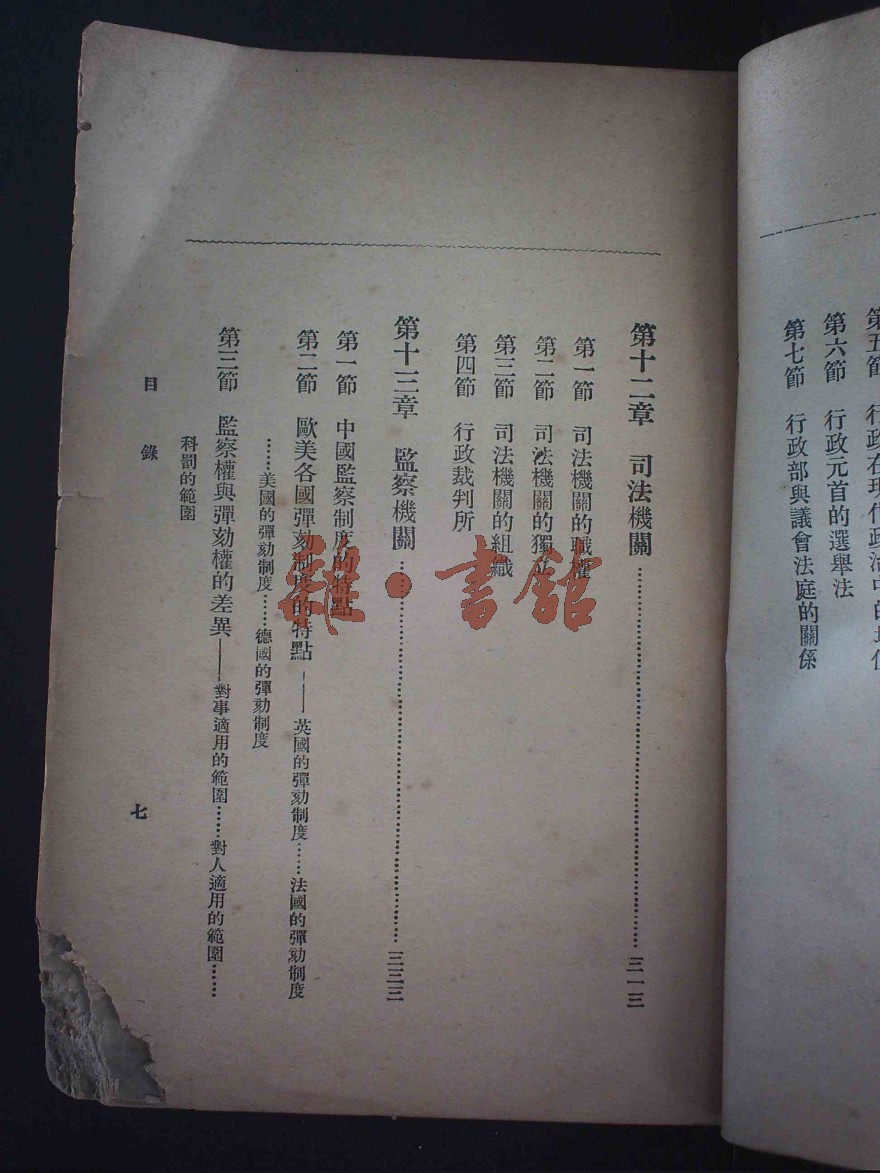 第五節　行政在現代政治中的地位
第六節　行政元首的選舉法
第七節　行政部與議會法庭的關係
第十二章　司法機關……三一三
第一節　司法機關的職權
第二節　司法機關的獨立
第三節　司法機關的組織
第四節　行政裁判所
第十三章　監察機關……三三三
第一節　中國監察制度的特點
第二節　歐美各國彈劾制度的特點——英國的彈劾制度……法國的彈劾制度
……美國的彈劾制度……德國的彈劾制度
第三節　監察權與彈劾權的差異——對事適用的範圍……對人適用的範圍……
科罰的範圍
目錄
七
雜·書館